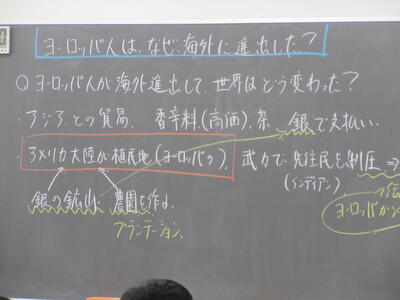 ヨーロッパ人は、なぜ海外に進出した?
○ヨーロッパ人が海外進出して、世界はどう変わった?
・アジアとの貿易、香辛料(高価)、茶、銀で支払い。
・アメリカ大陸が植民地(ヨーロッパの) 武力で、先住民を制圧⇒
(インディアン)
銀の鉱山、農園を作る。
プランテーション
ヨーロッパから